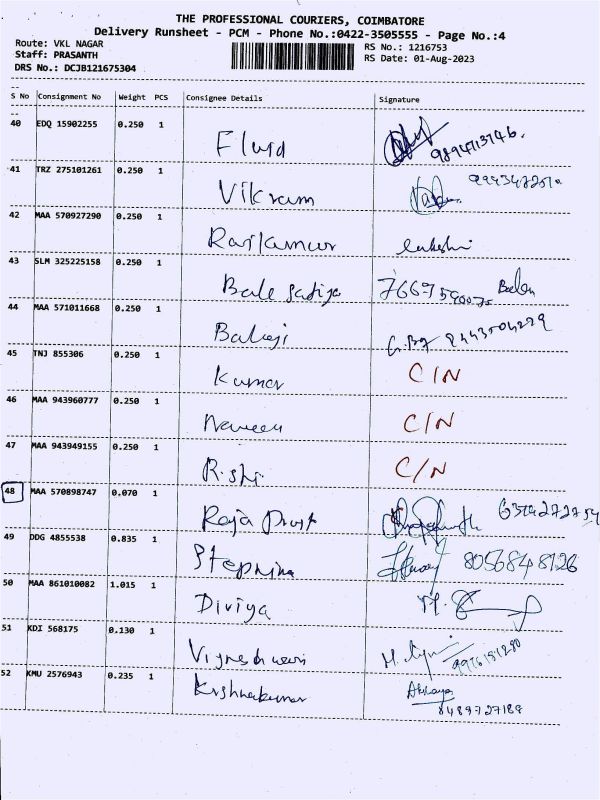 THE PROFESSIONAL COURIERS, COIMBATORE
Delivery Runsheet - PCM - Phone No.:0422-3505555 - Page No.:4
Route: VKL NAGAR RS No.: 1216753
Staff: PRASANTH RS Date: 01-Aug-2023
DRS No.: DCJB121675304
S No Consignment No Weight PCS Consignee Details Signature
40 EDQ 15902255 0.250 1
41 TRZ 275101261 0.250 1 Vikram
42 MAA 570927290 0.250 1 Rajkumar
43 SLM 325225158 0.250 1 Bale
44 MAA 571011668 0.250 1 Balaji
45 TNJ 855306 0.250 1 Kumar C/N
46 MAA 943960777 0.250 1 Naveen C/N
47 MAA 943949155 0.250 1 Rishi C/N
48 MAA 570898747 0.070 1 Raja
49 DDG 4855538 0.835 1 8056848126
50 MAA 861010082 1.015 1 Diviya
51 KDI 568175 0.130 1 Vigneshwari
52 KMU 2576943 0.235 1 Krishnakumar
8489727189